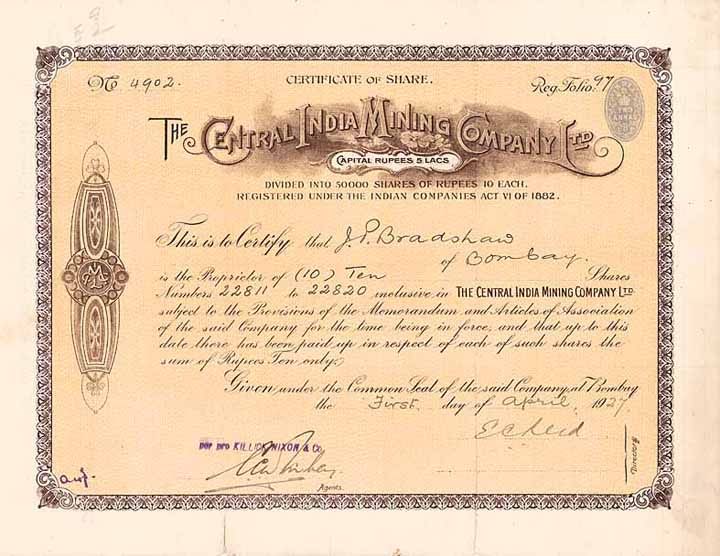 No 4902.
CERTIFICATE OF SHARE.
Reg. Folio. 97
THE CENTRAL INDIA MINING COMPANY LTD
CAPITAL RUPEES 5 LACS
DIVIDED INTO 50000 SHARES OF RUPEES 10 EACH.
REGISTERED UNDER THE INDIAN COMPANIES ACT VI OF 1882.
This is to Certify that J.P. Bradshaw
of Bombay.
is the Proprietor of (10) Ten Shares
Numbers 22811 to 22820 inclusive in THE CENTRAL INDIA MINING COMPANY LTD.
subject to the Provisions of the Memorandum and Articles of Association
of the said Company for the time being in force, and that up to this
date there has been paid up in respect of each of such shares the
sum of Rupees Ten only;
Given under the Common Seal of the said Company, at Bombay
the First day of April, 1927.
per pro KILLICK NIXON & Co.
Agents.
Directors